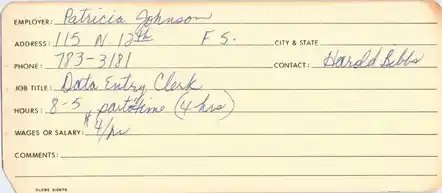 EMPLOYER: Patricia Johnson
ADDRESS: 115 N 12th F S. CITY & STATE
PHONE: 783-3181 CONTACT: Harold Bibbs
JOB TITLE: Data Entry Clerk
HOURS: 8-5, part time (4 hrs)
WAGES OR SALARY: $4/hr.
COMMENTS:
GLOBE 510878